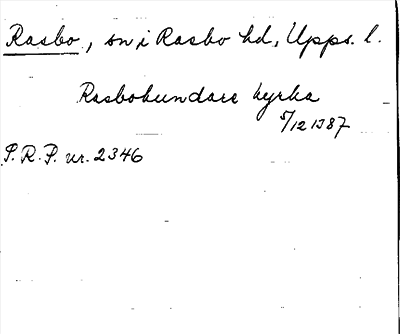 Rasbo, sn i Rasbo hd, Upps. l.
Rasbokundare kyrka
5/12 1387
S.R.P. nr. 2346